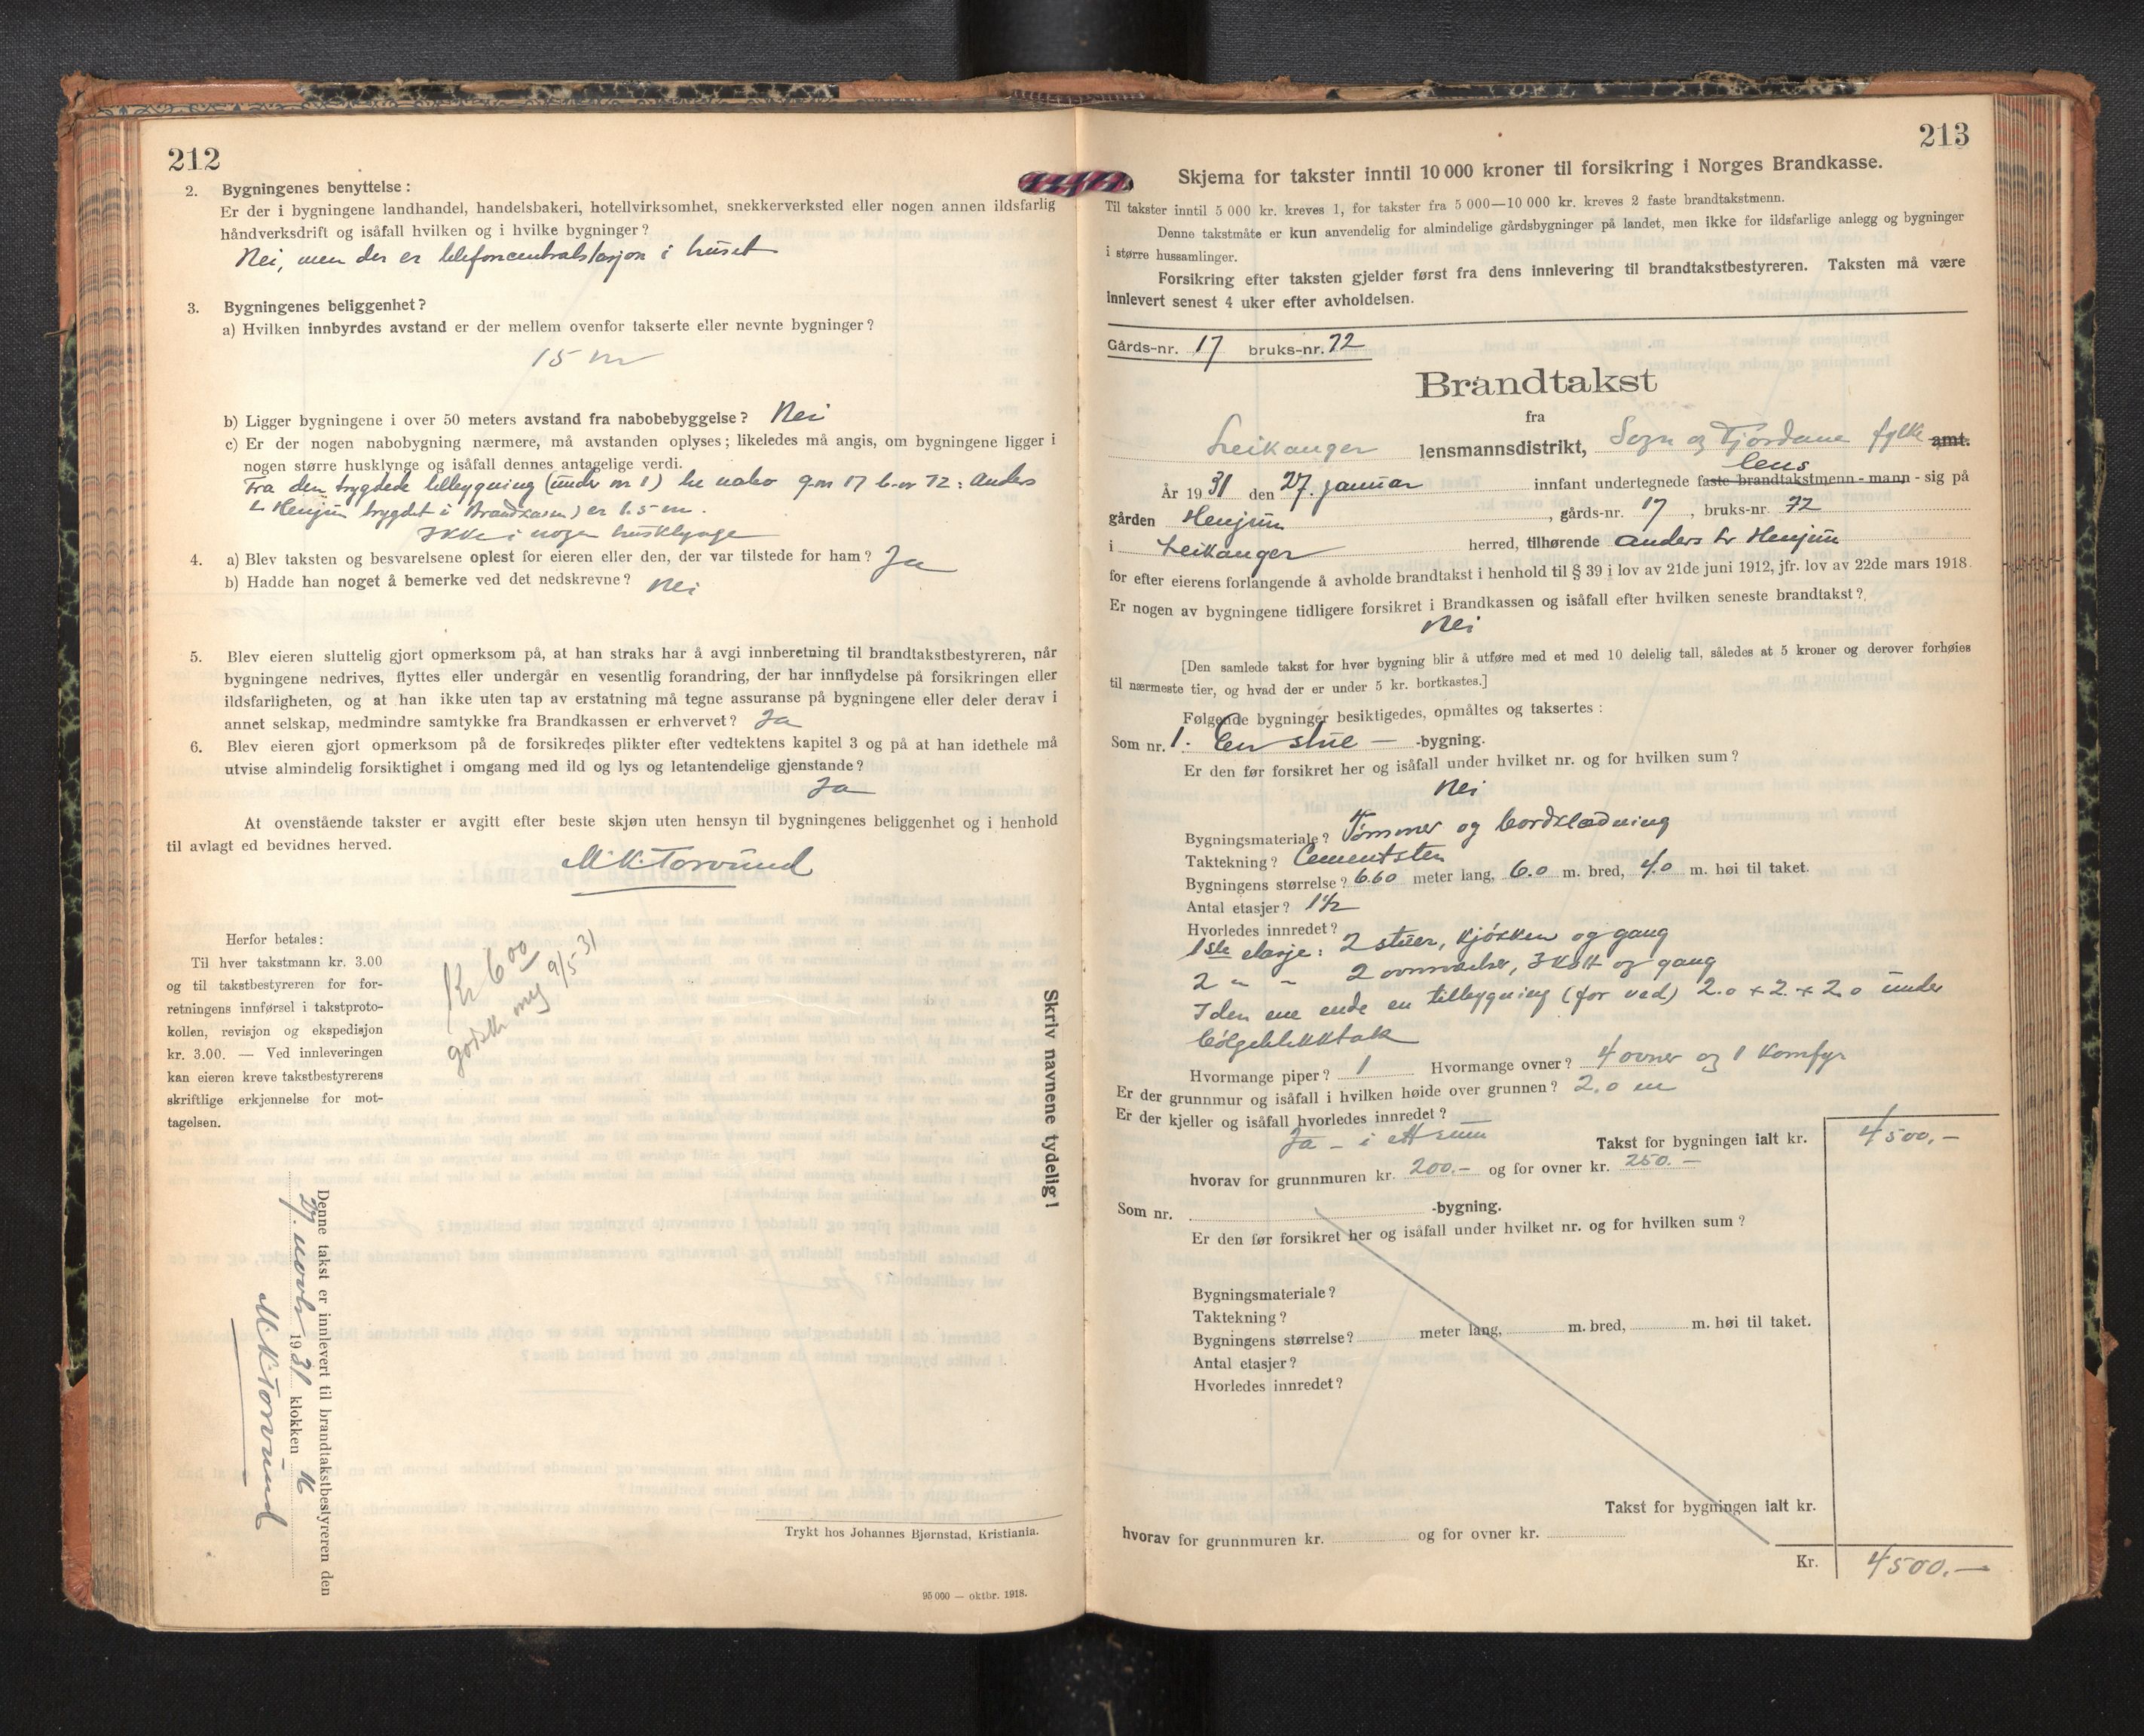 212
2. Bygningenes benyttelse:
Er der i bygningene landhandel, handelsbakeri, hotellvirksomhet, snekkerverksted eller nogen annen ildsfarlig
håndverksdrift og isåfall hvilken og i hvilke bygninger?
Nei, men der er telefoncentralstasjon i huset
3. Bygningenes beliggenhet?
a) Hvilken innbyrdes avstand er der mellem ovenfor takserte eller nevnte bygninger?
15 m
b) Ligger bygningene i over 50 meters avstand fra nabobebyggelse? Nei
c) Er der nogen nabobygning nærmere, må avstanden oplyses; likeledes må angis, om bygningene ligger i
nogen større husklynge og isåfall dennes antagelige verdi.
Fra den trygdede tilbygning (under nr 1) til nabo g.nr 17 b.nr 72: Anders
L Henjum trygdet i Brandkassen) er 1.5 m.
Ikke i nogen husklynge
4. a) Blev taksten og besvarelsene oplest for eieren eller den, der var tilstede for ham? Ja
b) Hadde han noget å bemerke ved det nedskrevne? Nei
5. Blev eieren sluttelig gjort opmerksom på, at han straks har å avgi innberetning til brandtakstbestyreren, når
bygningene nedrives, flyttes eller undergår en vesentlig forandring, der har innflydelse på forsikringen eller
ildsfarligheten, og at han ikke uten tap av erstatning må tegne assuranse på bygningene eller deler derav i
annet selskap, medmindre samtykke fra Brandkassen er erhvervet? Ja
6. Blev eieren gjort opmerksom på de forsikredes plikter efter vedtektens kapitel 3 og på at han idethele må
utvise almindelig forsiktighet i omgang med ild og lys og letantendelige gjenstande?
Ja
At ovenstående takster er avgitt efter beste skjøn uten hensyn til bygningenes beliggenhet og i henhold
til avlagt ed bevidnes herved.
M. K. Torvund
Herfor betales:
Til hver takstmann kr. 3.00
og til takstbestyreren for for-
retningens innførsel i takstproto-
kollen, revisjon og ekspedisjon
kr. 3.00. — Ved innleveringen
kan eieren kreve takstbestyrerens
skriftlige erkjennelse for mot-
tagelsen.
Kr 6 00
godtk mig 9/5 31
Skriv navnene tydelig!
Denne takst er innlevert til brandtakstbestyreren den
27. novbr 1931 klokken 16
M. K. Torvund
Trykt hos Johannes Bjørnstad, Kristiania.
95 000 — oktbr. 1918.
213
Skjema for takster inntil 10 000 kroner til forsikring i Norges Brandkasse.
Til takster inntil 5 000 kr. kreves 1, for takster fra 5 000—10 000 kr. kreves 2 faste brandtakstmenn.
Denne takstmåte er kun anvendelig for almindelige gårdsbygninger på landet, men ikke for ildsfarlige anlegg og bygninger
i større hussamlinger.
Forsikring efter taksten gjelder først fra dens innlevering til brandtakstbestyreren. Taksten må være
innlevert senest 4 uker efter avholdelsen.
Gårds-nr. 17 bruks-nr. 72
Brandtakst
fra
Leikanger lensmannsdistrikt, Sogn og Fjordane fylke amt.
År 1931 den 27. januar innfant undertegnede faste brandtakstmenn - mann - sig på
lens
gården Henjum, gårds-nr. 17, bruks-nr. 72
i Leikanger herred, tilhørende Anders L. Henjum
for efter eierens forlangende å avholde brandtakst i henhold til § 39 i lov av 21de juni 1912, jfr. lov av 22de mars 1918.
Er nogen av bygningene tidligere forsikret i Brandkassen og isåfall efter hvilken seneste brandtakst?
Nei
[Den samlede takst for hver bygning blir å utføre med et med 10 delelig tall, således at 5 kroner og derover forhøies
til nærmeste tier, og hvad der er under 5 kr. bortkastes.]
Følgende bygninger besiktigedes, opmåltes og taksertes:
Som nr. 1. En stue — -bygning.
Er den før forsikret her og isåfall under hvilket nr. og for hvilken sum?
Nei
Bygningsmateriale? Tømmer og bordklædning
Taktekning? Cementsten
Bygningens størrelse? 6.60 meter lang, 6.0 m. bred, 4.0 m. høi til taket.
Antal etasjer? 1½
Hvorledes innredet?
1ste etasje: 2 stuer, kjøkken og gang
2 " - 2 værelser, 3 kott og gang
I den ene ende en tilbygning (for ved) 2.0 × 2 × 2.0 under
bølgeblikktak
Hvormange piper? 1 Hvormange ovner? 4 ovner og 1 komfyr
Er der grunnmur og isåfall i hvilken høide over grunnen? 2.0 m
Er der kjeller og isåfall hvorledes innredet?
Ja – i ett rum
Takst for bygningen ialt kr. 4500.–
hvorav for grunnmuren kr. 200.– og for ovner kr. 250.–
Som nr. -bygning.
Er den før forsikret her og isåfall under hvilket nr. og for hvilken sum?
Bygningsmateriale?
Taktekning?
Bygningens størrelse? meter lang, m. bred, m. høi til taket.
Antal etasjer?
Hvorledes innredet?
Takst for bygningen ialt kr.
hvorav for grunnmuren kr. og for ovner kr.
Kr. 4500.–